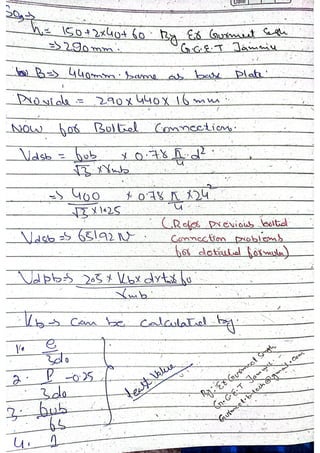 Sol→
h = 150+2×40+60. By Er Gurmeet Singh
⇒ 290mm. G.C.E.T Jammu
B ⇒ 440mm. same as base plate.
Provide = 290×440×16mm.
Now for Bolted Connection.
Vdsb = fub/√3×γmb × 0.78 π/4 · d²
⇒ 400/√3×1.25 × 0.78 π/4 ×24²
Vdsb ⇒ 65192 N. (Refer previous bolted
connection problems
for detailed formula)
Vdpb ⇒ 2.5 × Kb × d×t× fu / γmb
Kb → Can be calculated by.
1. e/3do
2. P/3do -0.25
3. fub/
4. 1
least value
By: Er Gurmeet Singh
G.C.E.T Jammu